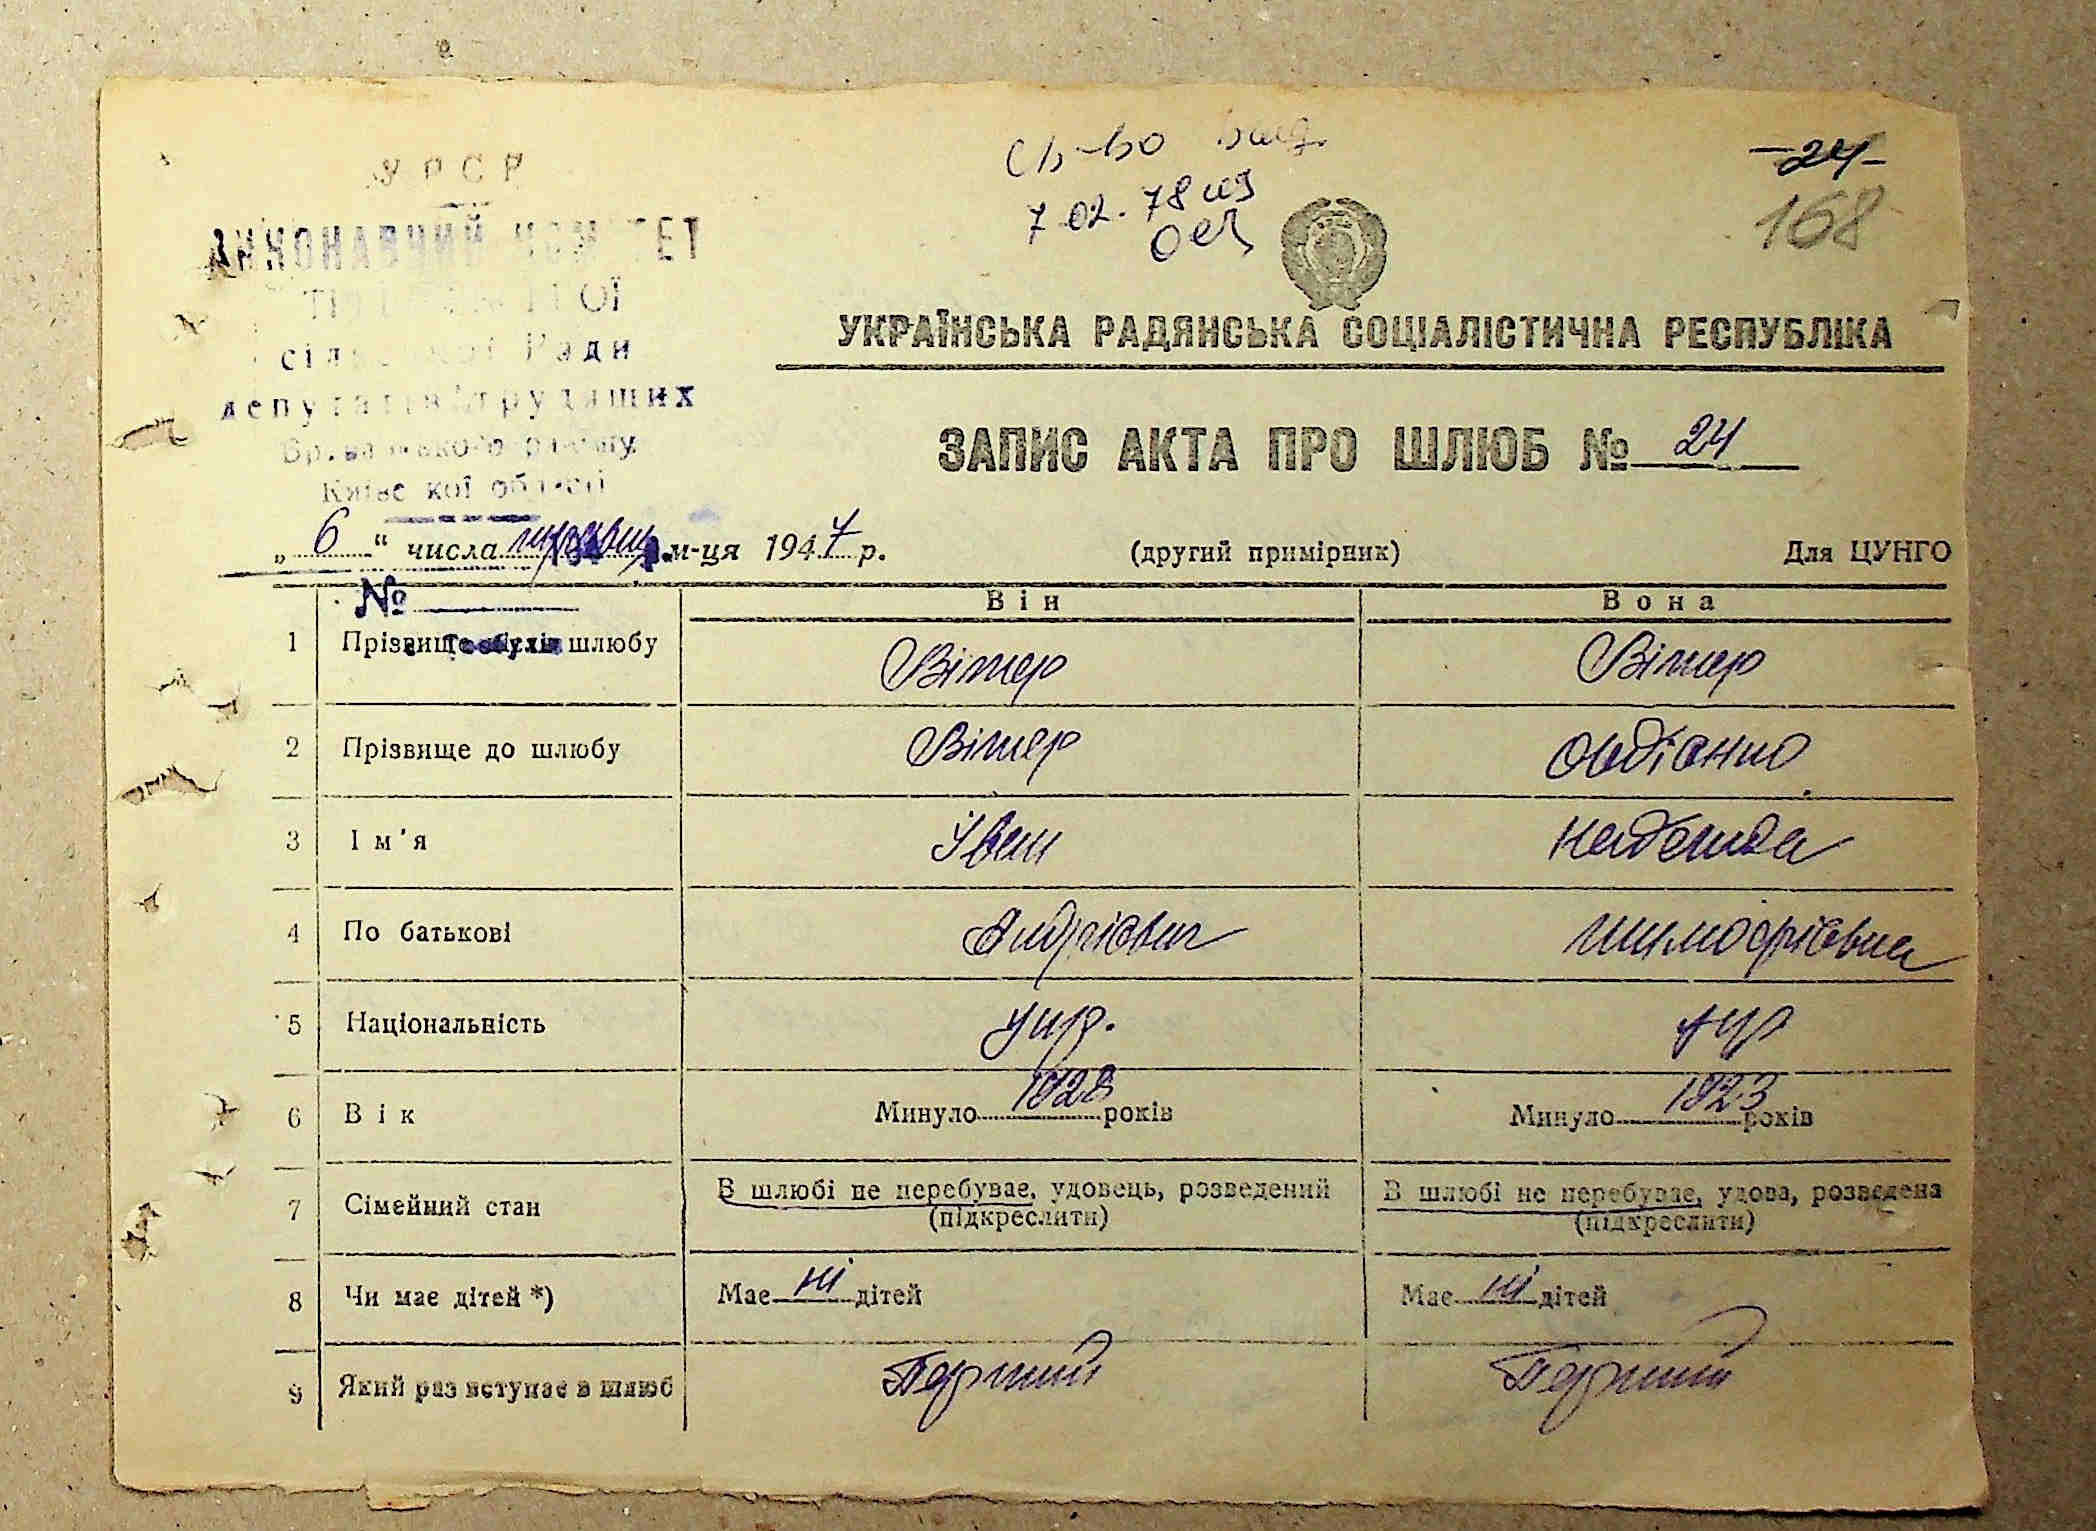 Св-во выд.
7.02.78
-24-
168
УРСР
ВИКОНАВЧИЙ КОМІТЕТ
сільської Ради
депутатів трудящих
Броварського району
Київської області
УКРАЇНСЬКА РАДЯНСЬКА СОЦІАЛІСТИЧНА РЕСПУБЛІКА
ЗАПИС АКТА ПРО ШЛЮБ № 24
„6“ числа м-ця 1947 р. (другий примірник) Для ЦУНГО
№
Він Вона
1 Прізвище після шлюбу Вітер Вітер
2 Прізвище до шлюбу Вітер Овдієнко
3 Ім'я Іван Надежда
4 По батькові Андрієвич Тимофієвна
5 Національність укр. укр
6 Вік Минуло 1928 років Минуло 1923 років
7 Сімейний стан В шлюбі не перебуває, удовець, розведений В шлюбі не перебуває, удова, розведена
(підкреслити) (підкреслити)
8 Чи має дітей *) Має ні дітей Має ні дітей
9 Який раз вступає в шлюб Перший Перший